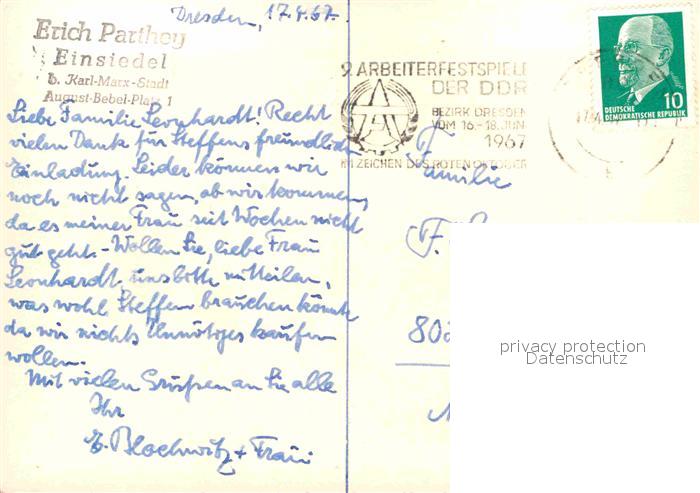 Dresden, 17.4.67.
Erich Parthey
Einsiedel
b. Karl-Marx-Stadt
August-Bebel-Platz 1
Liebe Familie Leonhardt! Recht
vielen Dank für Steffens freundliche
Einladung. Leider können wir
noch nicht sagen, ob wir kommen,
da es meiner Frau seit Wochen nicht
gut geht. - Wollen Sie, liebe Frau
Leonhardt, uns bitte mitteilen,
was wohl Steffen brauchen könnte
da wir nichts Unnötiges kaufen
wollen.
Mit vielen Grüßen an Sie alle
Ihr
E. Blochwitz + Frau
9. ARBEITERFESTSPIELE
DER DDR
BEZIRK DRESDEN
VOM 16.-18. JUNI
1967
IM ZEICHEN DES ROTEN OKTOBER
DEUTSCHE
DEMOKRATISCHE REPUBLIK
10
Familie
F.
80
privacy protection
Datenschutz